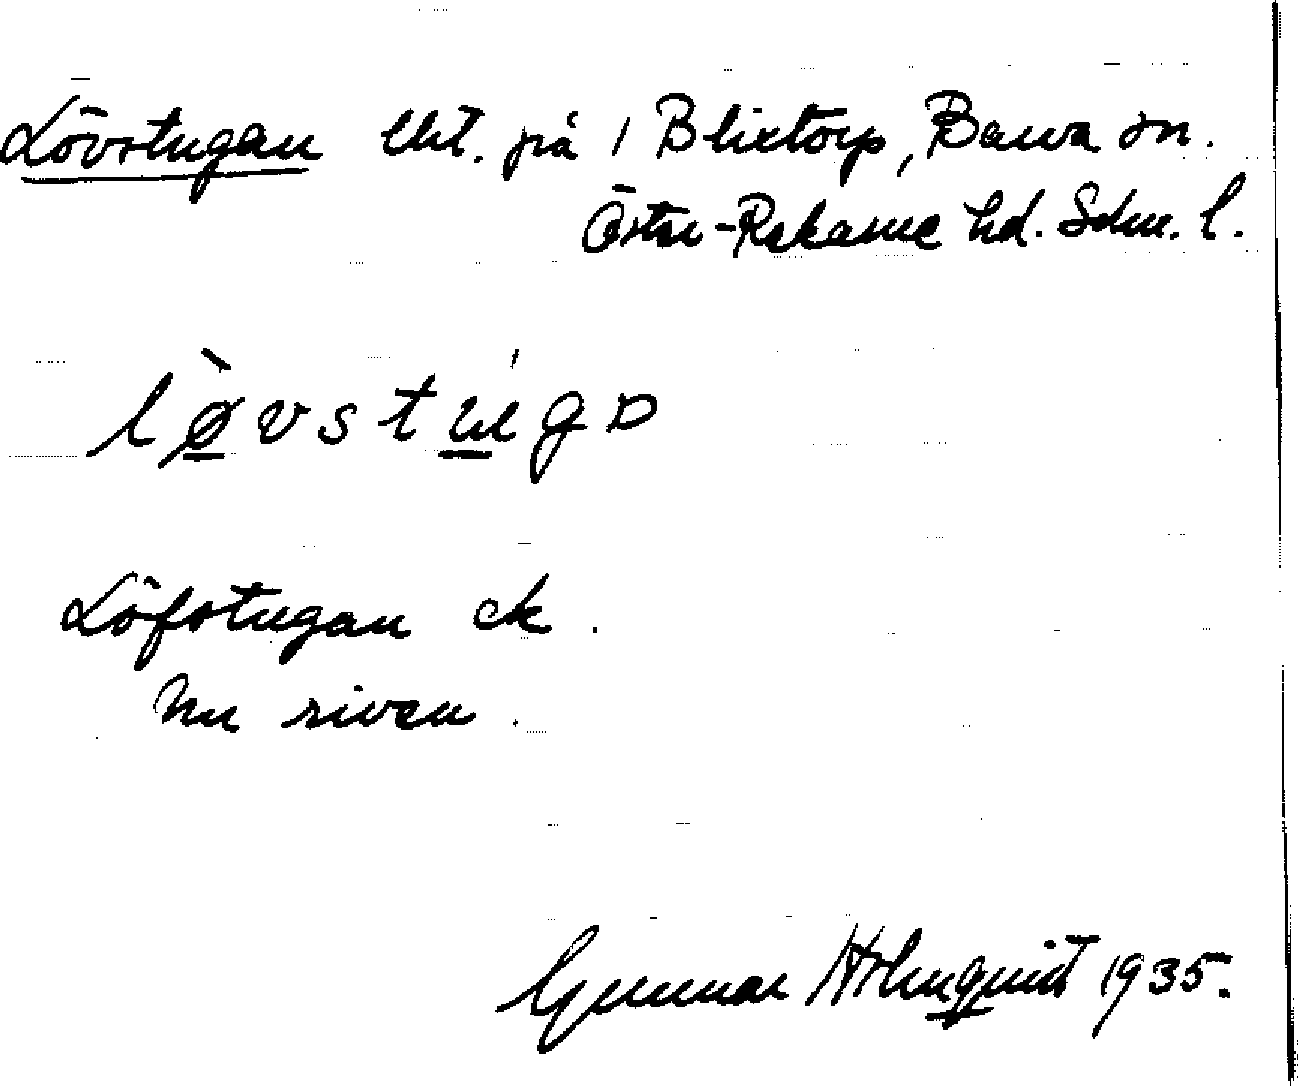 Lövstugan lht. på 1 Blixtorp, Barva sn.
Öster-Rekarne hd. Sdm. l.
lø̀vstu̍gɒ
Löfstugan ek.
Nu riven.
Gunnar Holmqvist 1935.